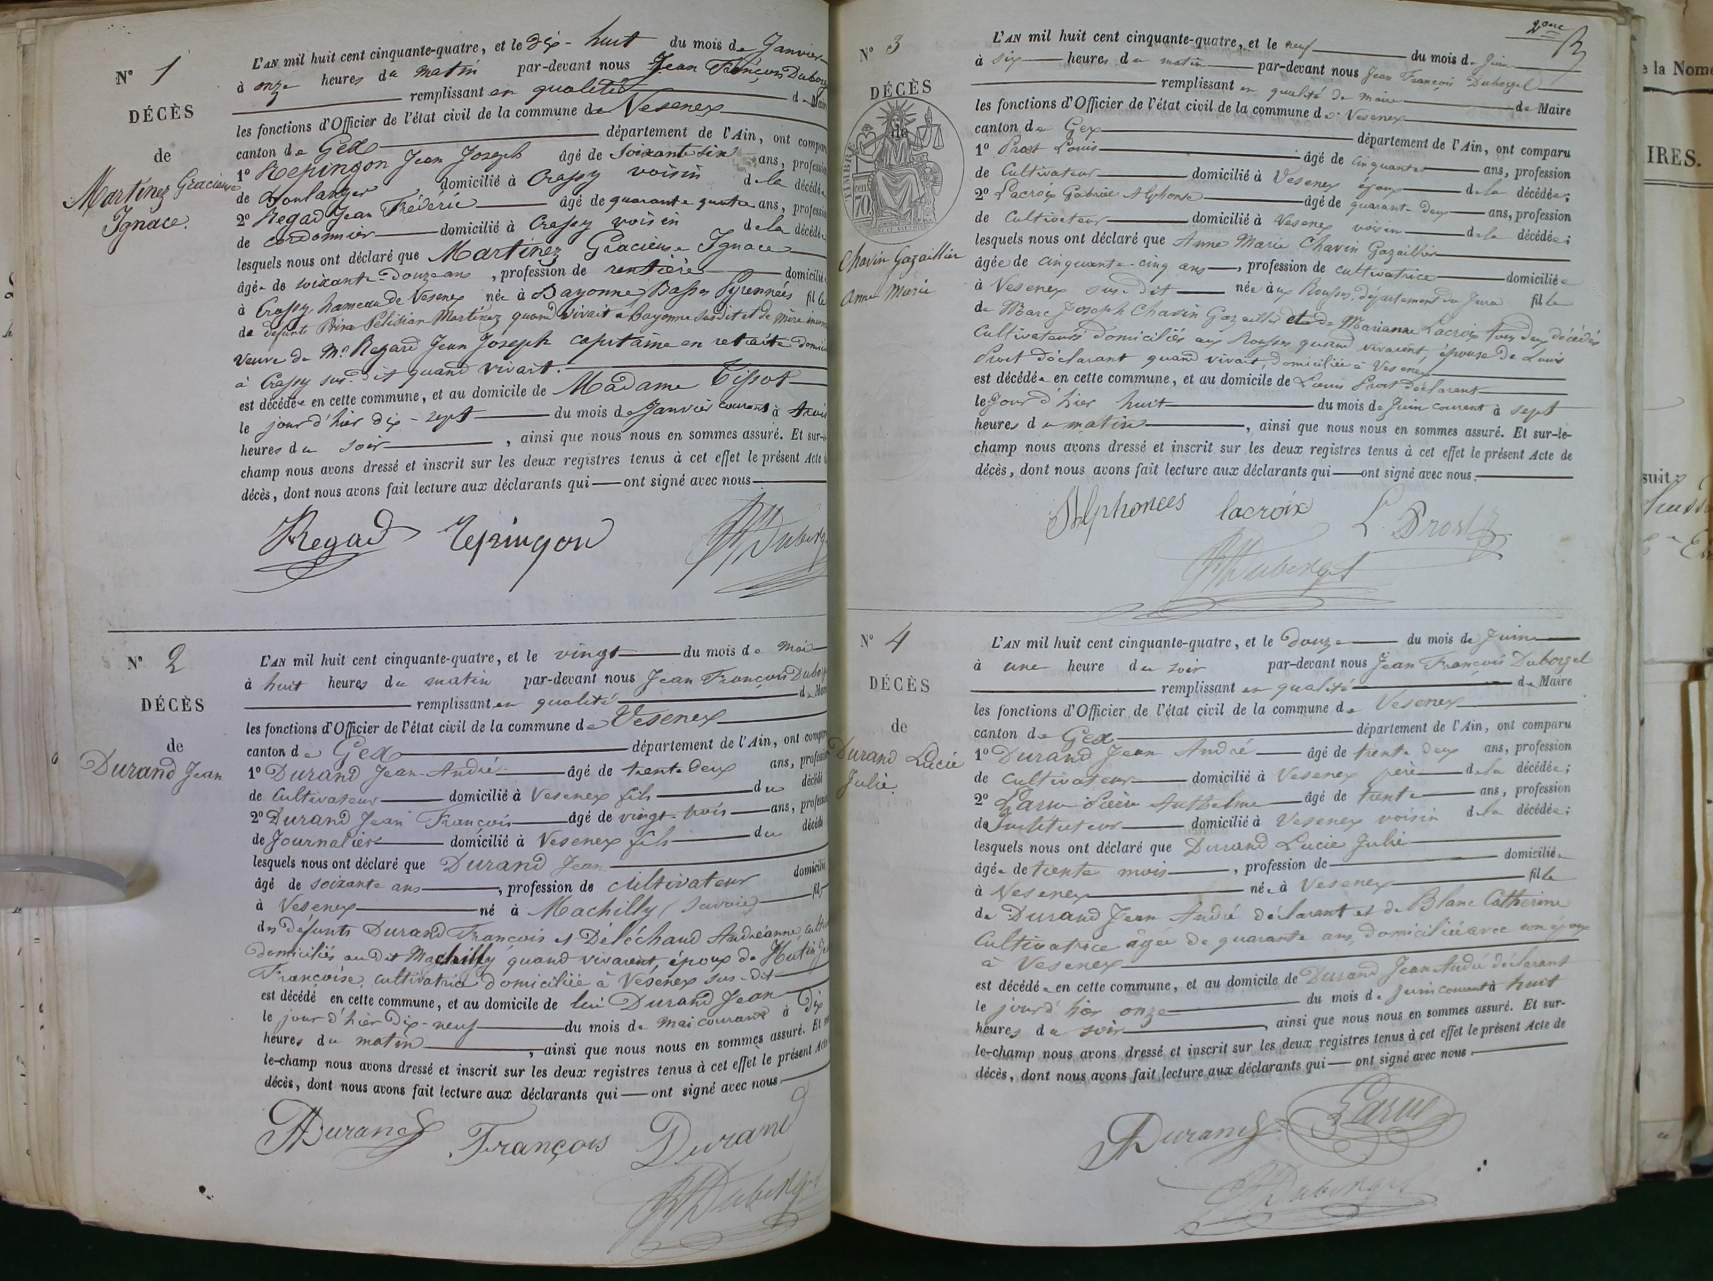 N° 1
DÉCÈS
de
Martinez Gracieuse
Ignace.
L'AN mil huit cent cinquante-quatre, et le dix-huit du mois de Janvier
à onze heures du matin par-devant nous Jean François Duborg
remplissant en qualité de Maire
les fonctions d'Officier de l'état civil de la commune de Vesenex
canton de Gex département de l'Ain, ont comparu
1° Repingon Jean Joseph âgé de Soixante six ans, profession
de Boulanger domicilié à Crassy voisin de la décédée,
2° Regad Jean Fréderic âgé de quarante quatre ans, profession
de cordonnier domicilié à Crassy voisin de la décédée
lesquels nous ont déclaré que Martinez Gracieuse Ignace
âgée de soixante-douze ans, profession de rentière domiciliée
à Crassy, hameau de Vesenex née à Bayonne Basses Pyrennées fille
de défunt Martinez quand vivait à bayonne susdit et de mère
veuve de Mr Regard Jean Joseph capitaine en retraite
à Crassy sus-dit quand vivait.
est décédée en cette commune, et au domicile de Madame Tissot
le jour d'hier dix-sept du mois de Janvier courant à trois
heures du soir, ainsi que nous nous en sommes assuré. Et sur-le-
champ nous avons dressé et inscrit sur les deux registres tenus à cet effet le présent Acte de
décès, dont nous avons fait lecture aux déclarants qui ont signé avec nous
Regad Repingon
N° 2
DÉCÈS
de
Durand Jean
L'AN mil huit cent cinquante-quatre, et le vingt du mois de mai
à huit heures du matin par-devant nous Jean François
remplissant en qualité de Maire
les fonctions d'Officier de l'état civil de la commune de Vesenex
canton de Gex département de l'Ain, ont comparu
1° Durand Jean-André âgé de trente deux ans, profession
de Cultivateur domicilié à Vesenex fils du décédé
2° Durand Jean François âgé de vingt-trois ans, profession
de Journalier domicilié à Vesenex fils du décédé
lesquels nous ont déclaré que Durand Jean
âgé de soixante ans, profession de cultivateur domicilié
à Vesenex né à Machilly (Savoie) fils
des défunts Durand François et Déléchaud Andréanne,
domiciliés au dit Machilly quand vivaient, époux de Hutin
Françoise, cultivatrice domiciliée à Vésenex sus-dit
est décédé en cette commune, et au domicile de lui Durand Jean
le jour d'hier dix-neuf du mois de mai courant à dix
heures du matin, ainsi que nous nous en sommes assuré. Et sur-
le-champ nous avons dressé et inscrit sur les deux registres tenus à cet effet le présent Acte
décès, dont nous avons fait lecture aux déclarants qui ont signé avec nous
Durand François Durand
2me
N° 3
DÉCÈS
de
TIMBRE
70
Chavin Gazaillier
Anne Marie
L'AN mil huit cent cinquante-quatre, et le neuf du mois de Juin
à six heures du matin par-devant nous Jean François Duborgel
remplissant en qualité de maire de Maire
les fonctions d'Officier de l'état civil de la commune de Vesenex
canton de Gex département de l'Ain, ont comparu
1° Prost Louis âgé de cinquante ans, profession
de Cultivateur domicilié à Vesenex époux de la décédée;
2° Lacroix Gabriel Alphonse âgé de quarante deux ans, profession
de Cultivateur domicilié à Vesenex voisin de la décédée;
lesquels nous ont déclaré que Anne Marie Chavin Gazaillier
âgée de cinquante-cinq ans, profession de cultivatrice domiciliée
à Vesenex sus-dit née aux Rousses, département du Jura fille
de Marc Joseph Chavin Gazaillier et de Marianne Lacroix tous deux décédés
Cultivateurs domiciliés aux Rousses quand vivaient, épouse de Louis
Prost déclarant quand vivait, domiciliée à Vesenex
est décédée en cette commune, et au domicile de Louis Prost déclarant
le jour d'hier huit du mois de Juin courant à sept
heures du matin, ainsi que nous nous en sommes assuré. Et sur-le-
champ nous avons dressé et inscrit sur les deux registres tenus à cet effet le présent Acte de
décès, dont nous avons fait lecture aux déclarants qui ont signé avec nous.
Alphonces lacroix L. Prost
N° 4
DÉCÈS
de
Durand Lucie
Julie.
L'AN mil huit cent cinquante-quatre, et le douze du mois de Juin
à une heure du soir par-devant nous Jean François Duborgel
remplissant en qualité de Maire
les fonctions d'Officier de l'état civil de la commune de Vesenex
canton de Gex département de l'Ain, ont comparu
1° Durand Jean André âgé de trente deux ans, profession
de cultivateur domicilié à Vesenex père de la décédée;
2° Larue Anthelme âgé de trente ans, profession
de Instituteur domicilié à Vesenex voisin de la décédée;
lesquels nous ont déclaré que Durand Lucie Julie
âgée de trente mois, profession de domiciliée
à Vesenex née à Vesenex fille
de Durand Jean André déclarant et de Blanc Catherine
Cultivatrice âgée de quarante ans, domiciliée avec son époux
à Vesenex
est décédée en cette commune, et au domicile de Durand Jean André déclarant
le jour d'hier onze du mois de Juin courant à huit
heures du soir, ainsi que nous nous en sommes assuré. Et sur-
le-champ nous avons dressé et inscrit sur les deux registres tenus à cet effet le présent Acte de
décès, dont nous avons fait lecture aux déclarants qui ont signé avec nous
Durand Larue
e la Nom
IRES.
suit: